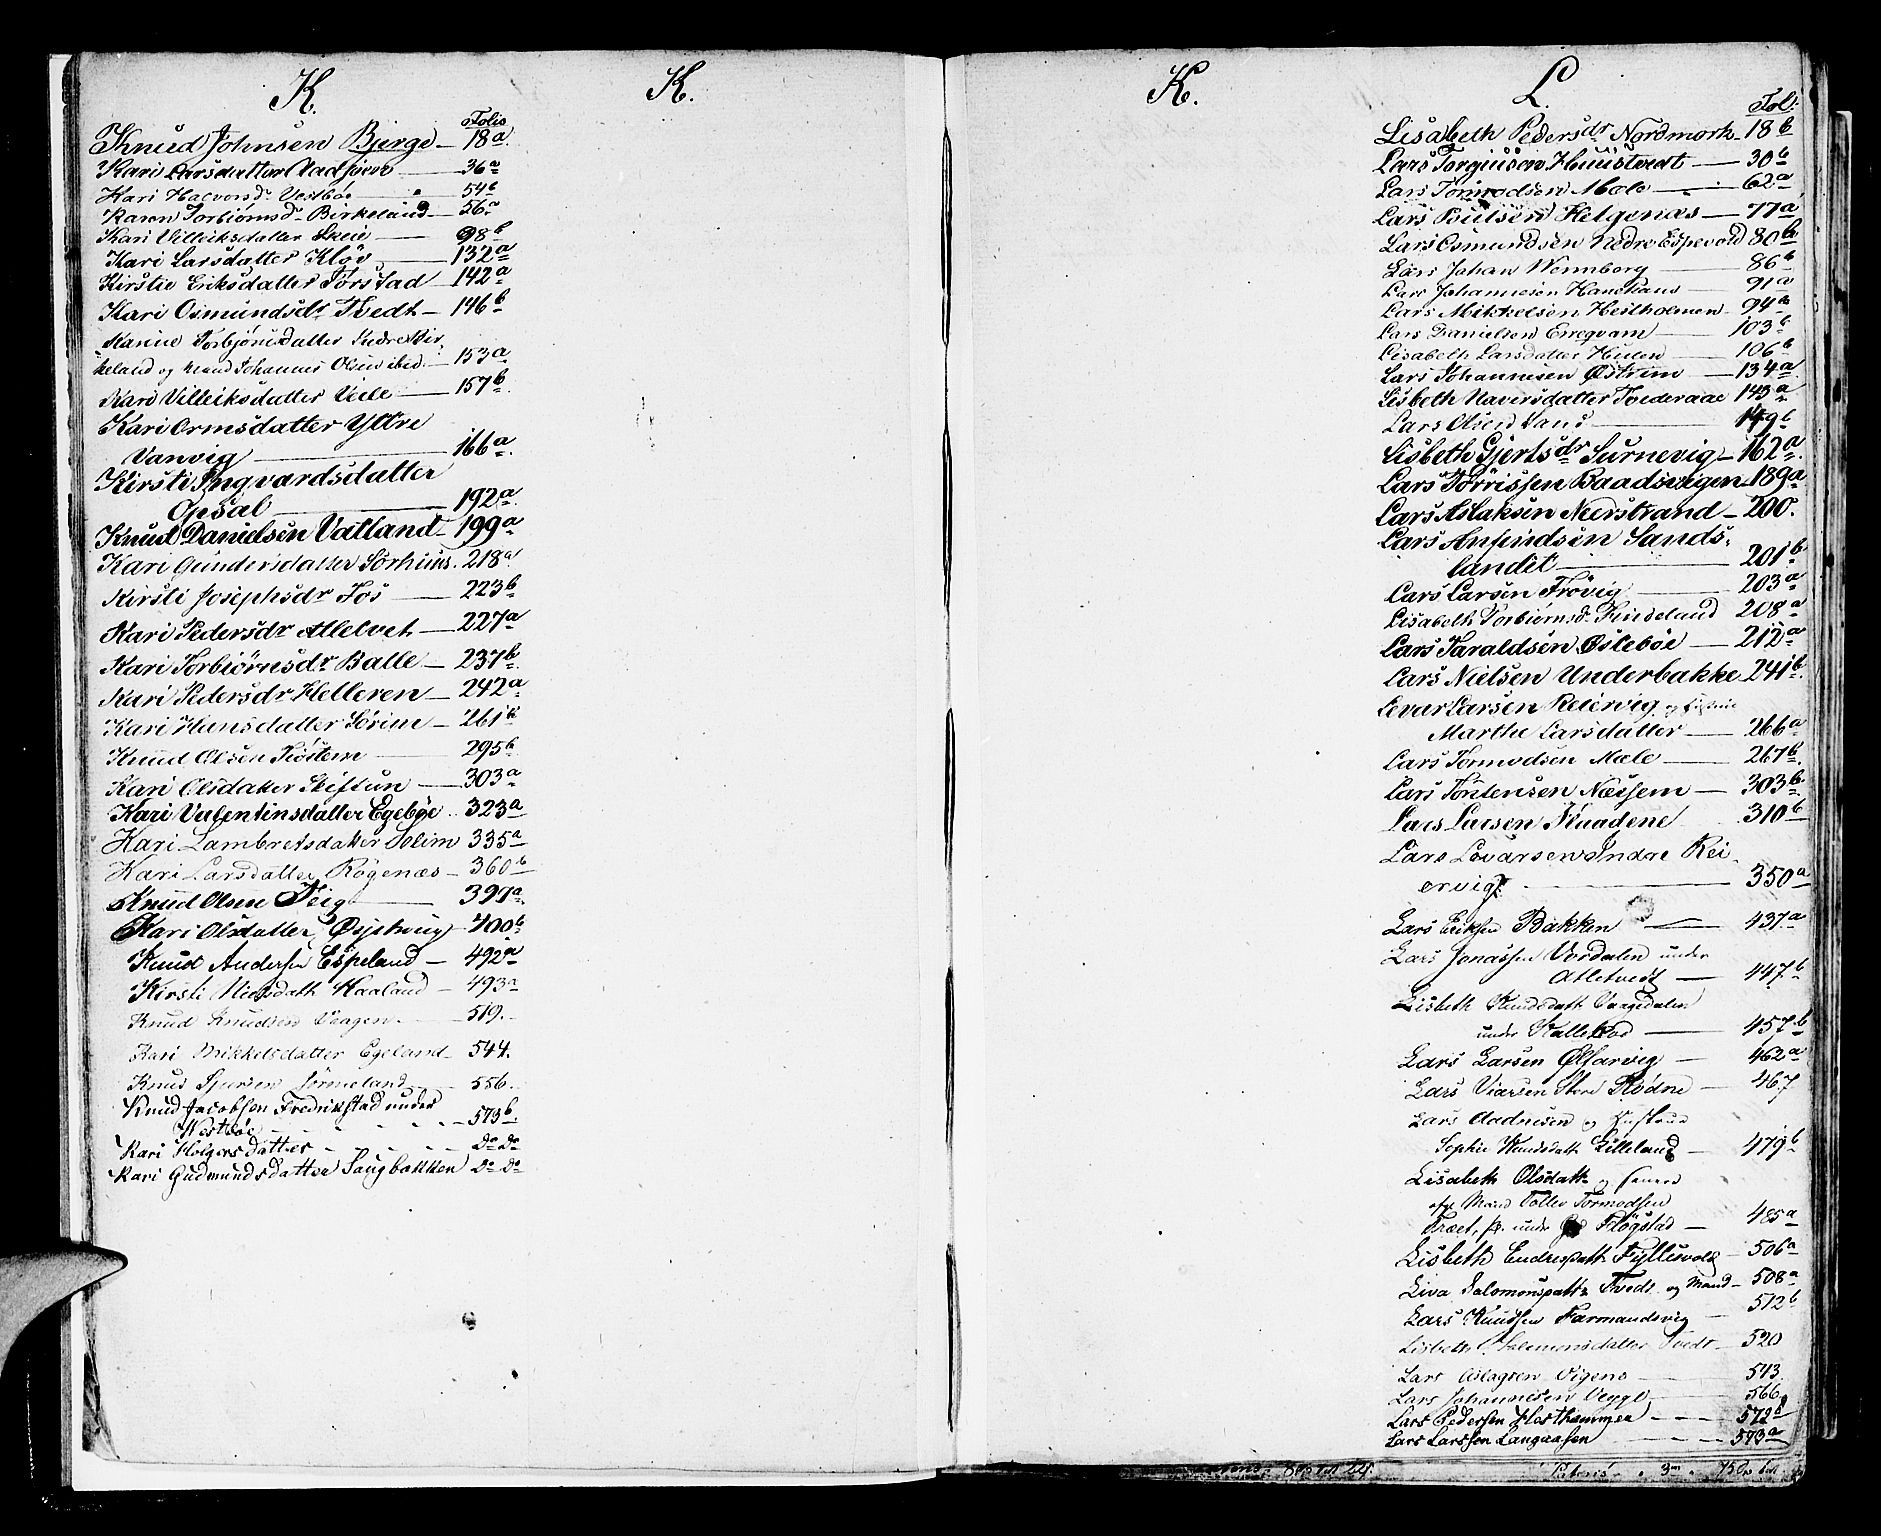 K.
Folio
Knud Johnsen Bjerge 18a.
Kari Larsdatter 36a
Kari Halvorsd. Vestbøe 54b
Karen Torbiørnsd. Birkeland 56a
Kari Villeiksdatter Skeie 98b
Kari Larsdatter Kløv 132a
Kirstie Eriksdatter Tørstad 142a
Kari Osmundsdr Tvedt 146b
Karine Torbjørnsdatter Indre Bir
keland og mand Johannes Olsen ibid. 153a
Kari Villeiksdatter Veile 157b
Kari Ormsdatter Yttre
Vanvig 166a
Kirsti Ingvardsdatter
Opsal 192a
Knud Danielsen Vatland 199a
Kari Gundersdatter Sørhuus. 218a
Kirsti Josephsdr Fos 223b
Kari Pedersdr Atletvet 227a
Kari Torbiørnsdr Balle 237b
Kari Pedersdr Helleren 242a
Kari Hansdatter Sørim 261b
Knud Olsen 295b
Kari Olsdatter Skiftun 303a
Kari Valentinsdatter Egebøe 323a
Kari Lambretsdatter Solim 335a
Kari Larsdatter Røgenæs 360b
Knud Olsen Teig 399a
Kari Olsdatter 400b
Knud Andersen Espeland 492a
Kirsti Nielsdatt. Haaland 493a
Knud Knudsen Vaagen 519.
Kari Mikkelsdatter Egeland 544.
Knud Sjursen 556.
Knud Jacobsen Fredrikstad under
Westbøe 573b
Kari Holgersdatter Do Do
Kari Gudmundsdatter Saugbakken Do Do
K.
K.
L.
Fol:
Lisabeth Pedersdr Nordmork 18b
Lars Torgiusen Huustvedt 30b
Lars Tormodsen Mæle 62a
Lars Poulsen Helgenæs 77a
Lars Osmundsen Nedre Espevold 80b
Lars Johan Wennberg 86b
Lars Johannesen 91a
Lars Mikkelsen Hestholmen 94a
Lars Danielsen 103b
Lisabeth Larsdatter Hulen 106b
Lars Johannesen Østrim 134a
Lisbeth Naversdatter Tvederaae 143a
Lars Olsen Sand 149b
Lisbeth Gjertsdr Surnevig 162a.
Lars Tørrissen Baadsvigen 189a
Lars Aslaksen Nærstrand 200.
Lars Anfindsen Sands-
landet 201b
Lars Larsen Frøvig 203a
Lisabeth Torbiørnsd. Kindeland 208a
Lars Taraldsen Østebøe 212a
Lars Nielsen Underbakke 241b
Levar Larsen Reiervig og Hustrue
Marthe Larsdatter 266a
Lars Tormodsen Mæle 267b
Lars Torstensen Næssem 303b
Lars Larsen 310b
Lars Levarsen Indre Rei-
ervig 350a
Lars Eriksen Bakken 437a
Lars Jonassen Vordalen under
Atletvedt 447b
Lisbeth Knudsdatt.
under 457b
Lars Larsen Ølfarvig 462a
Lars Rødne 467
Lars Aadnesen og Hustrue
Sophie Knudsdatt. Lilleland 479b
Lisabeth Olsdatt. og
Mand Tollev Tormodsen
under Fløgstad 485a
Lisbeth Endresdatt. 506a
Liva Salomonsdatt. Tvedt og Mand 508a
Lars Knudsen Farmandsvig 512b
Lisbeth Salomonsdatter Tvedt 520
Lars Aslagsen Vigene 543
Lars Johannesen 566
Lars Pedersen 572b
Lars Larssen Langaasen 573a